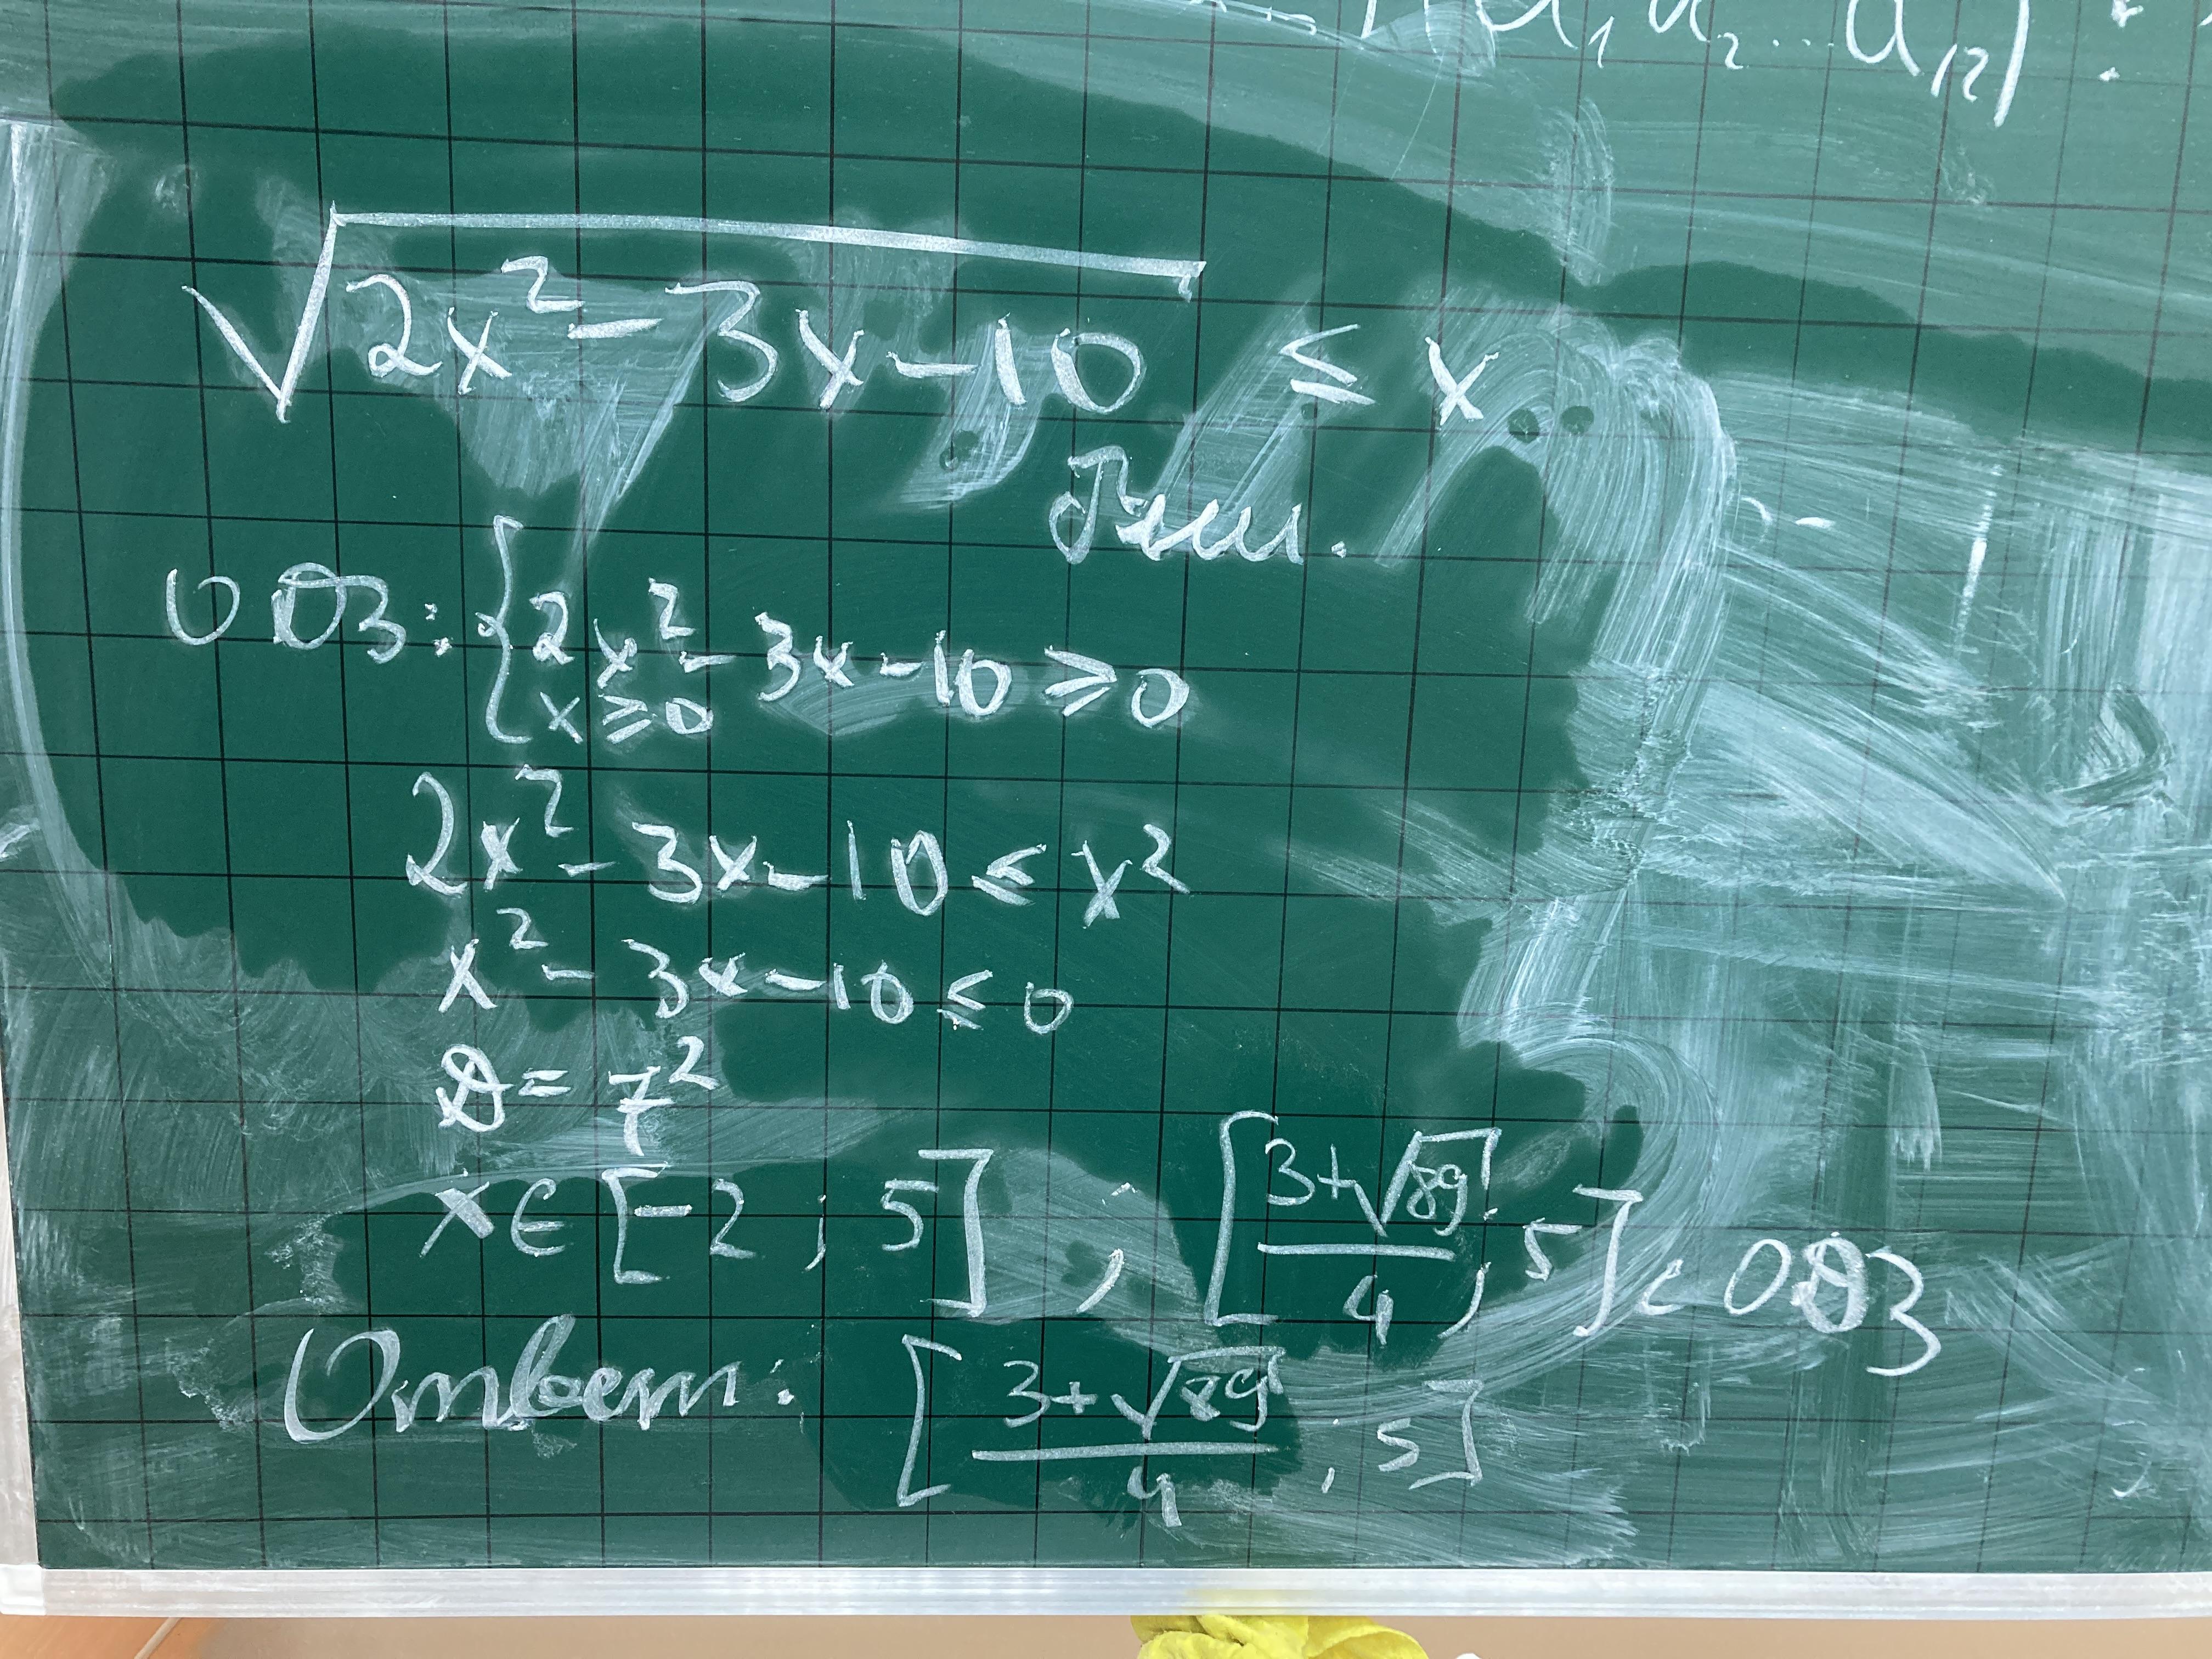 a₁ a₂ ... a₁₂) :
√(2x² - 3x - 10) ≤ x
Реш.
ОДЗ: { 2x² - 3x - 10 ≥ 0
x ≥ 0
2x² - 3x - 10 ≤ x²
x² - 3x - 10 ≤ 0
D = 7²
x ∈ [-2 ; 5] , [(3+√89)/4 ; 5] ⊂ ОДЗ
Ответ: [(3+√89)/4 , 5]